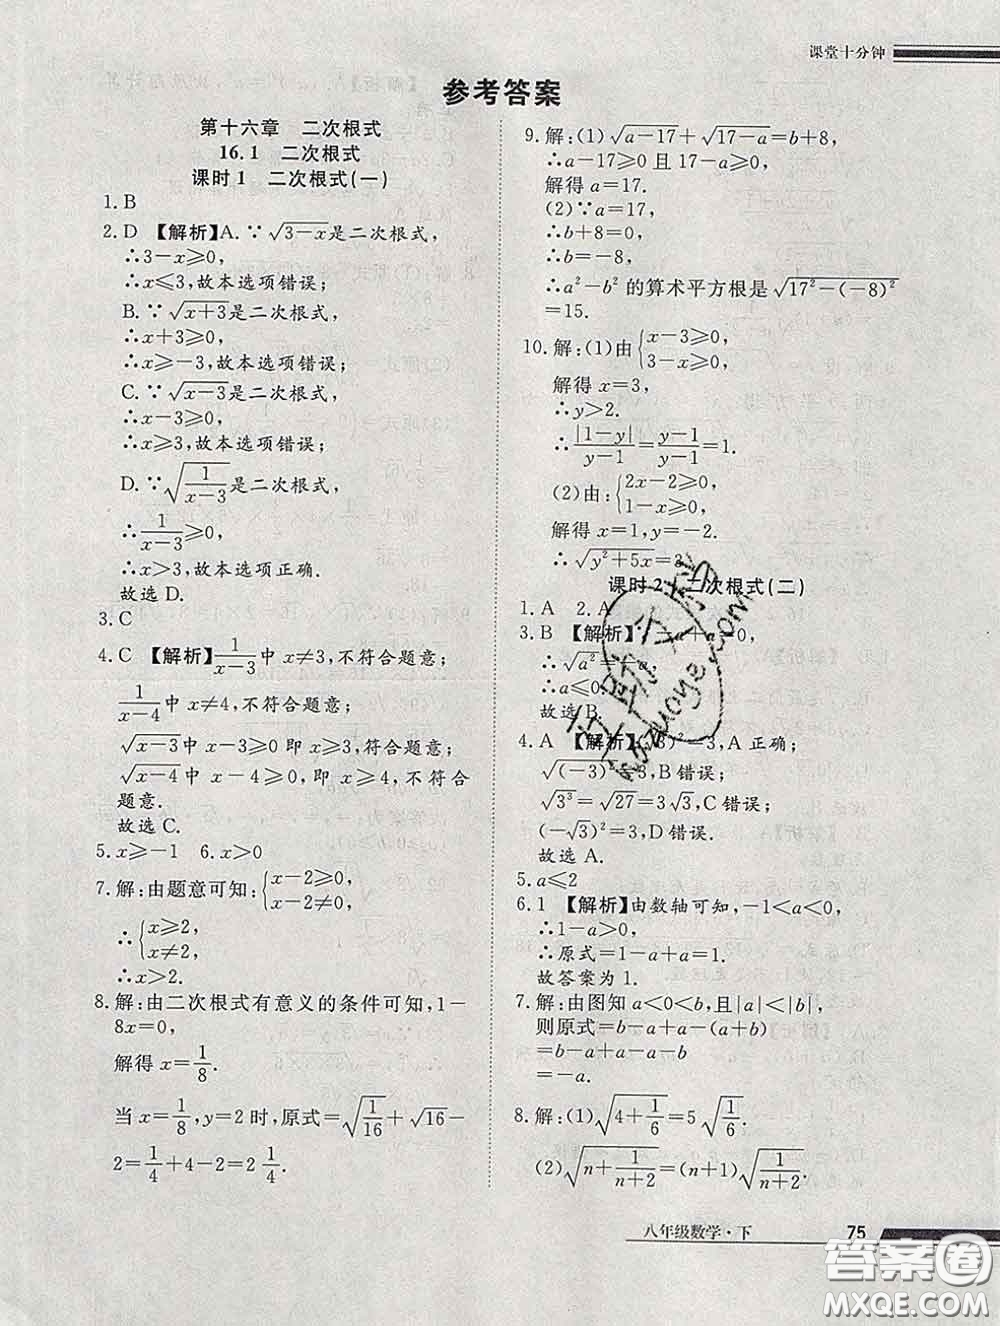 课堂十分钟
参考答案
第十六章 二次根式
16.1 二次根式
课时1 二次根式(一)
1. B
2. D 【解析】A. ∵√(3-x)是二次根式,
∴3-x≥0,
∴x≤3,故本选项错误;
B. ∵√(x+3)是二次根式,
∴x+3≥0,
∴x≥-3,故本选项错误;
C. ∵√(x-3)是二次根式,
∴x-3≥0,
∴x≥3,故本选项错误;
D. ∵√(1/(x-3))是二次根式,
∴1/(x-3)≥0,
∴x>3,故本选项正确.
故选 D.
3. C
4. C 【解析】1/(x-3)中 x≠3,不符合题意;
1/(x-4)中 x≠4,不符合题意;
√(x-3)中 x-3≥0 即 x≥3,符合题意;
√(x-4)中 x-4≥0,即 x≥4,不符合
题意.
故选 C.
5. x≥-1 6. x>0
7. 解:由题意可知:{x-2≥0,
x-2≠0,
∴{x≥2,
x≠2,
∴x>2.
8. 解:由二次根式有意义的条件可知,1-
8x=0,
解得 x=1/8.
当 x=1/8,y=2 时,原式=√(1/16)+√16-
2=1/4+4-2=2 1/4.
9. 解:(1)√(a-17)+√(17-a)=b+8,
∴a-17≥0 且 17-a≥0,
解得 a=17.
(2)∵a=17,
∴b+8=0,
∴b=-8,
∴a²-b² 的算术平方根是√(17²-(-8)²)
=15.
10. 解:(1)由{x-3≥0,
3-x≥0,
解得 x=3,
∴y>2.
∴|1-y|/(y-1)=(y-1)/(y-1)=1.
(2)由:{2x-2≥0,
1-x≥0,
解得 x=1,y=-2.
∴√(y²+5x)=3.
课时2 二次根式(二)
1. A 2. A
3. B 【解析】∵ +a=0,
∴√a²=-a,
∴a≤0
故选 B.
4. A 【解析】 3)²=3,A 正确;
√(-3)²=3,B 错误;
√3³=√27=3√3,C 错误;
(-√3)²=3,D 错误.
故选 A.
5. a≤2
6. 1 【解析】由数轴可知,-1<a<0,
∴1-a>0,
∴原式=1-a+a=1.
故答案为 1.
7. 解:由图知 a<0<b,且|a|<|b|,
则原式=b-a+a-(a+b)
=b-a+a-a-b
=-a.
8. 解:(1)√(4+1/6)=5√(1/6).
(2)√(n+1/(n+2))=(n+1)√(1/(n+2)).
八年级数学·下 75
答案圈
MXQE.COM